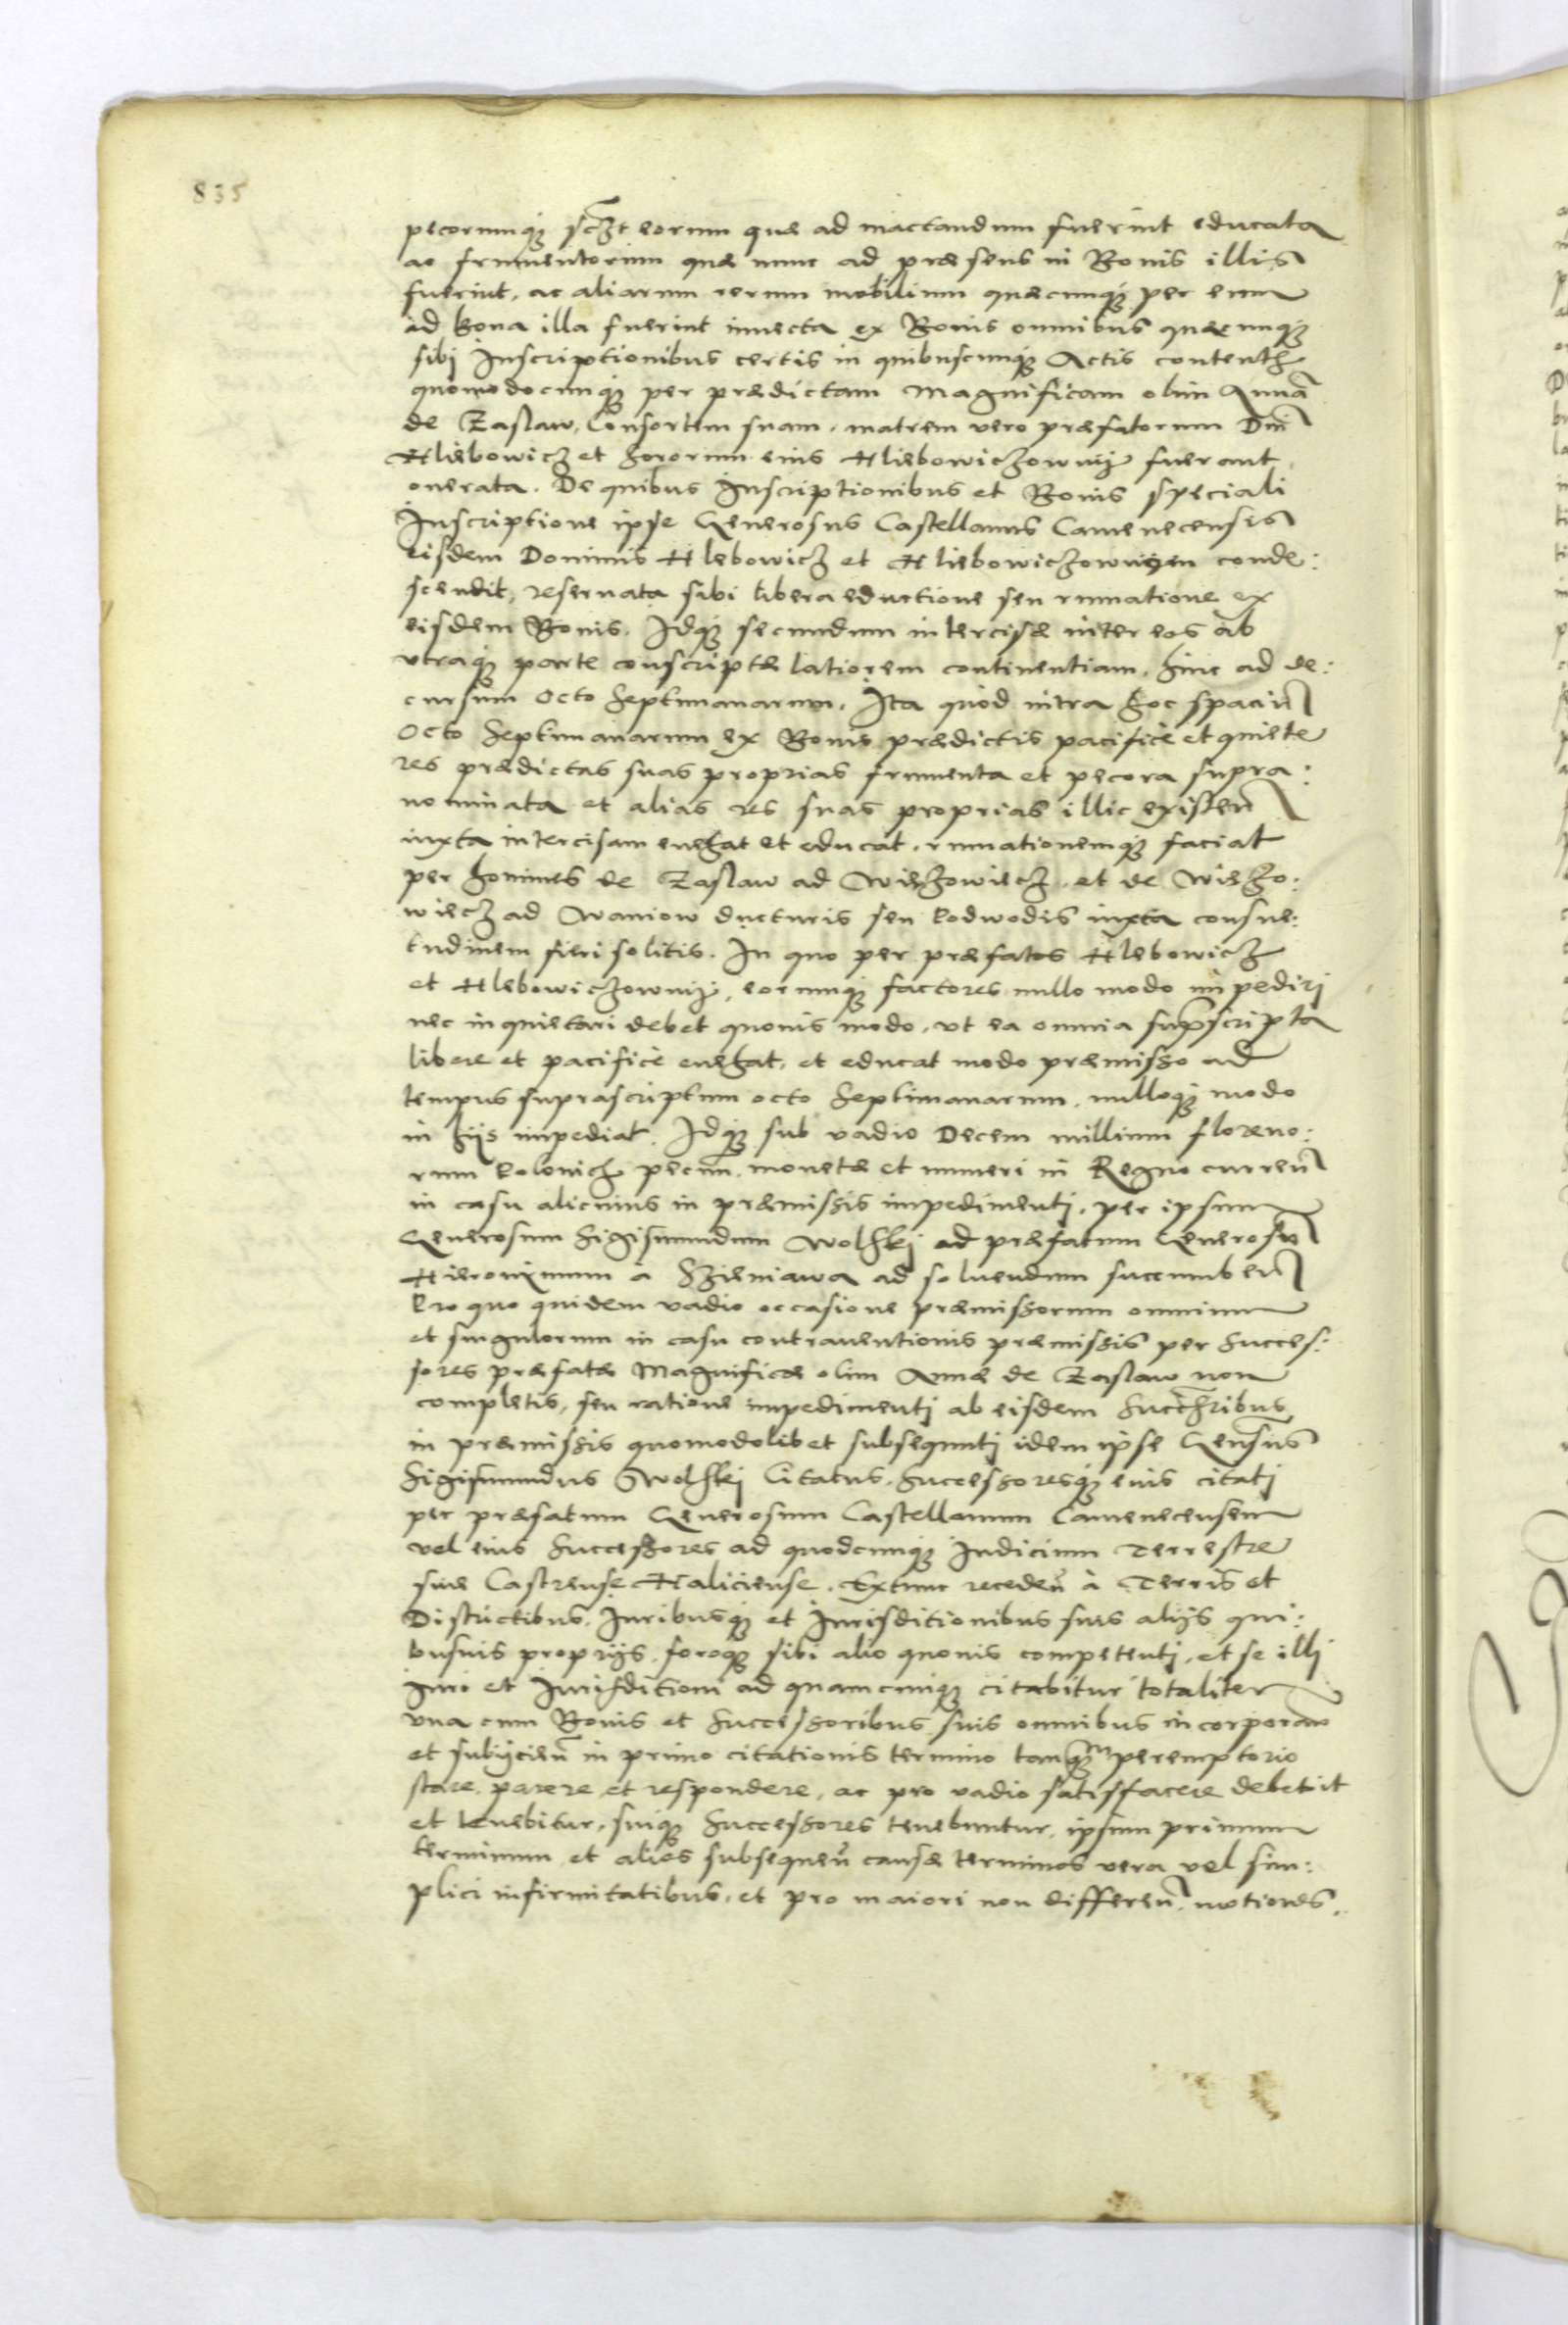 835
pecorumq; sczt eorum quæ ad mactandum fuerint educata
ac frumentorum quæ nunc ad præsens in Bonis illis
fuerint, ac aliarum rerum mobilium quæcunq; per eum
ad bona illa fuerint inuecta ex Bonis omnibus quæcunq;
sibi Inscriptionibus certis in quibuscunq; Actis content
quomodocunq; per prædictam Magnificam olim Annā
de Zaslaw, Consortem suam, matrem vero præfatorum Dni
Hliebowicz et Sororum eius Hliebowiczowny fuerant
onerata. De quibus Inscriptionibus et Bonis speciali
Inscriptione ipse Generosus Castellanus Camenecensis
eisdem Dominis Hlebowicz et Hliebowiczownyen conde:
scendit, reseruata sibi libera eductione seu rumatione ex
eisdem Bonis. Idq; secundum intercisæ inter eos ab
vtraq; parte conscriptæ latiorem continentiam, hinc ad de:
cursum Octo Septimanarum. Ita quòd intra hoc spaciū
Octo Septimanarum ex Bonis prædictis pacificè et quiete
res prædictas suas proprias frumenta et pecora supra:
nominata et alias res suas proprias illic existen
iuxta intercisam euehat et educat, rumationemq; faciat
per homines de Zaslaw ad Wiszowiecz, et de Wiszo:
wiecz ad Waniow ducturis seu podwodis iuxta consue:
tudinem fieri solitis. In quo per præfatos Hlebowicz
et Hlebowiczowny, eorumq; factores nullo modo impediri
nec inquietari debet quouis modo, vt ea omnia suprascripta
libere et pacificè euehat, et educat modo præmisso ad
tempus suprascriptum octo Septimanarum, nulloq; modo
in hijs impediat. Idq; sub vadio Decem millium floreno:
rum polonich pecun. monetæ et numeri in Regno curren
in casu alicuius in præmissis impedimenti, per ipsum
Generosum Sigismundum Wolski ad præfatum Generosū
Hieronimum à Sieniawa ad soluendum succumben
Pro quo quidem vadio occasione præmissorum omnium
et singulorum in casu contrauentionis præmissis per Succes:
sores præfatæ Magnificæ olim Annæ de Zaslaw non
completis, seu ratione impedimenti ab eisdem Succribus
in præmissis quomodolibet subsequuti idem ipse Gensus
Sigismundus Wolski Citatus, Successoresq; eius citati
per præfatum Generosum Castellanum Camenecensem
vel eius Successores ad quodcunq; Iudicium Terrestre
siue Castrense Haliciense. Extunc receden à Terris et
Districtibus, Iuribusq; et Iurisditionibus suis alijs qui:
busuis proprijs, foroq; sibi alio quouis competenti, et se illi
Iuri et Iurisditioni ad quamcunq; citabitur totaliter
vna cum Bonis et Successoribus suis omnibus incorporan
et subijcien in primo citationis termino tanq;m peremptorio
stare parere et respondere, ac pro vadio satisfacere debebit
et tenebitur, suiq; Successores tenebuntur, ipsum primum
terminum et alios subsequen causæ terminos vera vel sim:
plici infirmitatibus, et pro maiori non differen, motiones.